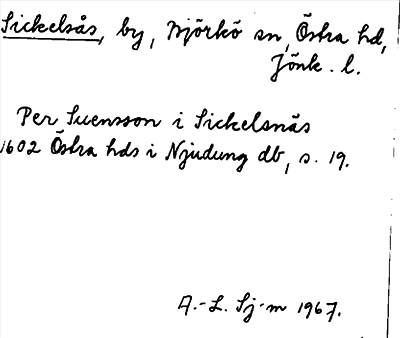 Sickelsås, by, Björkö sn, Östra hd,
Jönk. l.
Per Suensson i Sickelsnäs
1602 Östra hds i Njudung db, s. 19.
A.-L. Sj-m 1967.